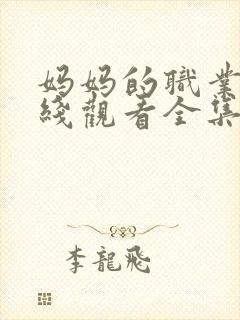 妈妈的職業
綫觀看全集
李龍飛